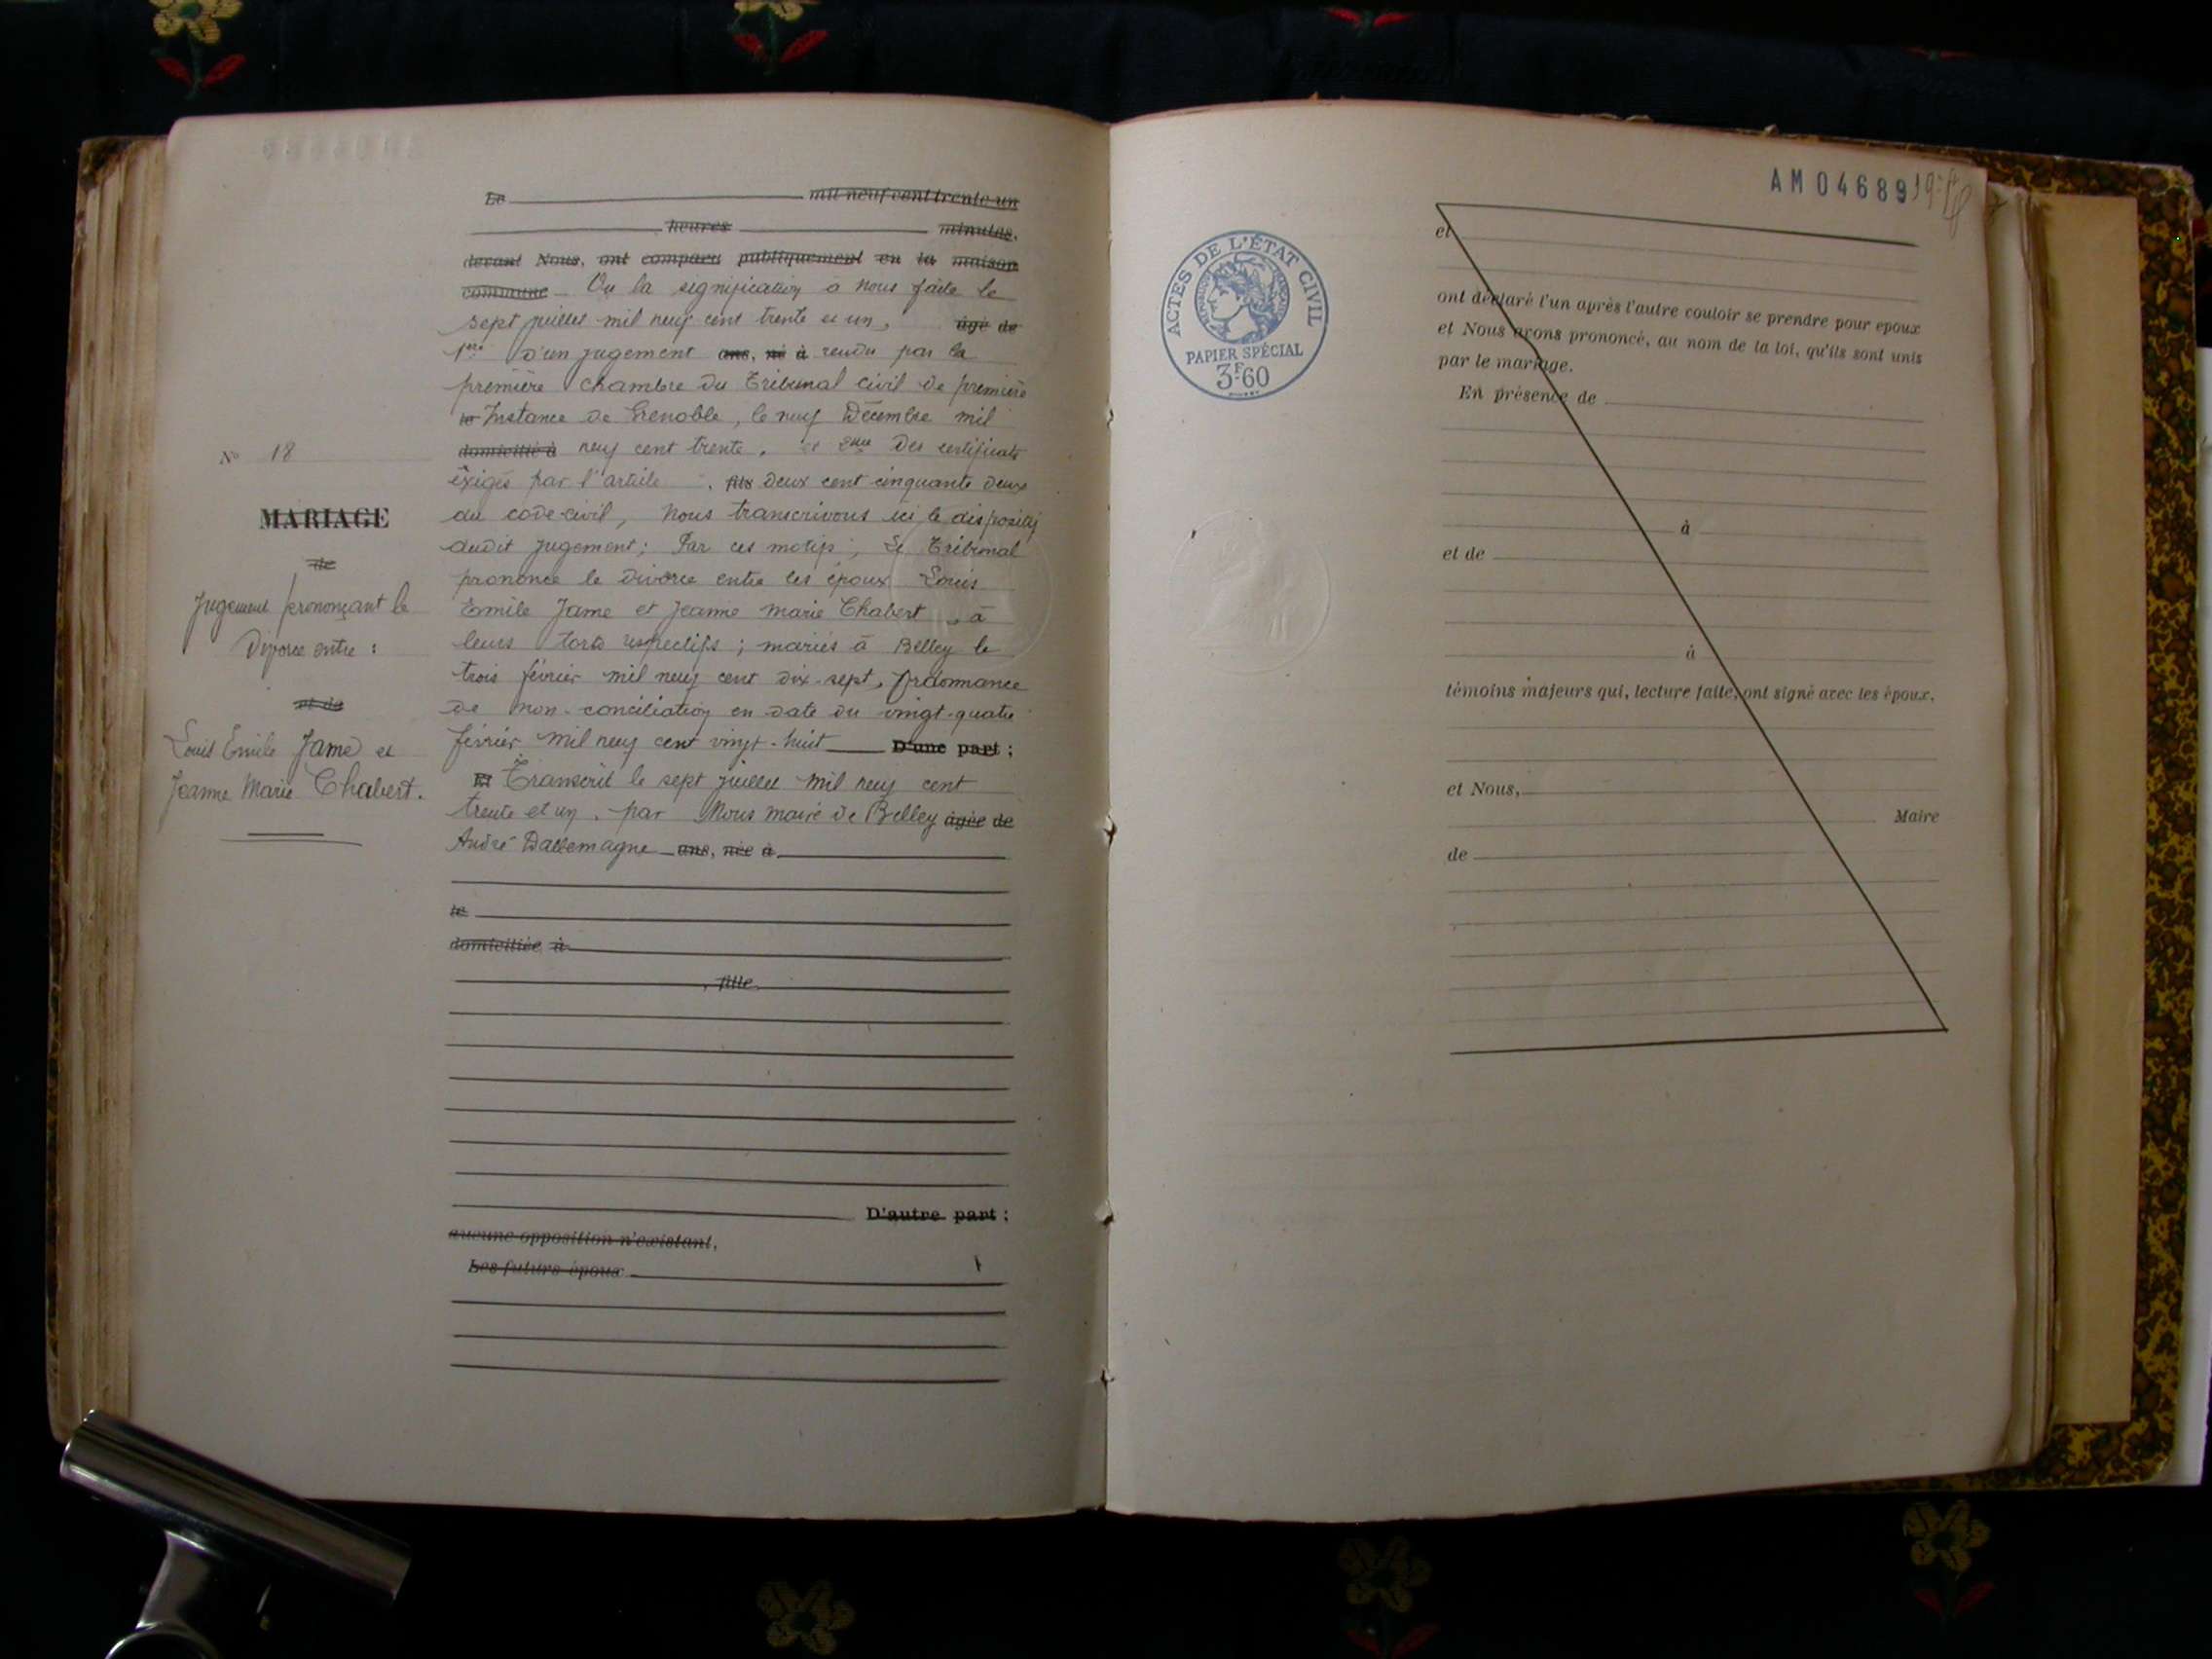 Le mil neuf cent trente un
heures minutes,
devant Nous, ont comparu publiquement en la maison
commune Vu la signification à nous faite le
sept juillet mil neuf cent trente et un, âgé de
1ere d'un jugement ans, né à rendu par la
première chambre du Tribunal civil de première
le Instance de Grenoble, le neuf Décembre mil
domicilié à neuf cent trente, et 2me Des certificats
éxigés par l'article , fils deux cent cinquante deux
du code civil, Nous transcrivons ici le dispositif
dudit jugement; Par ces motifs; Le Tribunal
prononce le divorce entre les époux Louis
Emile Jame et Jeanne Marie Chabert, à
leurs torts respectifs; mariés à Belley le
trois février mil neuf cent dix-sept, Ordonnance
de non-conciliation en date du vingt-quatre
février mil neuf cent vingt-huit D'une part;
Et Transcrit le sept juillet mil neuf cent
trente et un, par Nous maire de Belley âgée de
André Dallemagne ans, née à
le
domiciliée à
, fille
D'autre part;
aucune opposition n'existant,
Les futurs époux
No 18
MARIAGE
de
Jugement prononçant le
Divorce entre :
et de
Louis Emile Jame et
Jeanne Marie Chabert.
AM04689
ACTES DE L'ÉTAT CIVIL
PAPIER SPÉCIAL
3F60
et
ont déclaré l'un après l'autre vouloir se prendre pour époux
et Nous avons prononcé, au nom de la loi, qu'ils sont unis
par le mariage.
En présence de
à
et de
à
témoins majeurs qui, lecture faite, ont signé avec les époux.
et Nous,
Maire
de